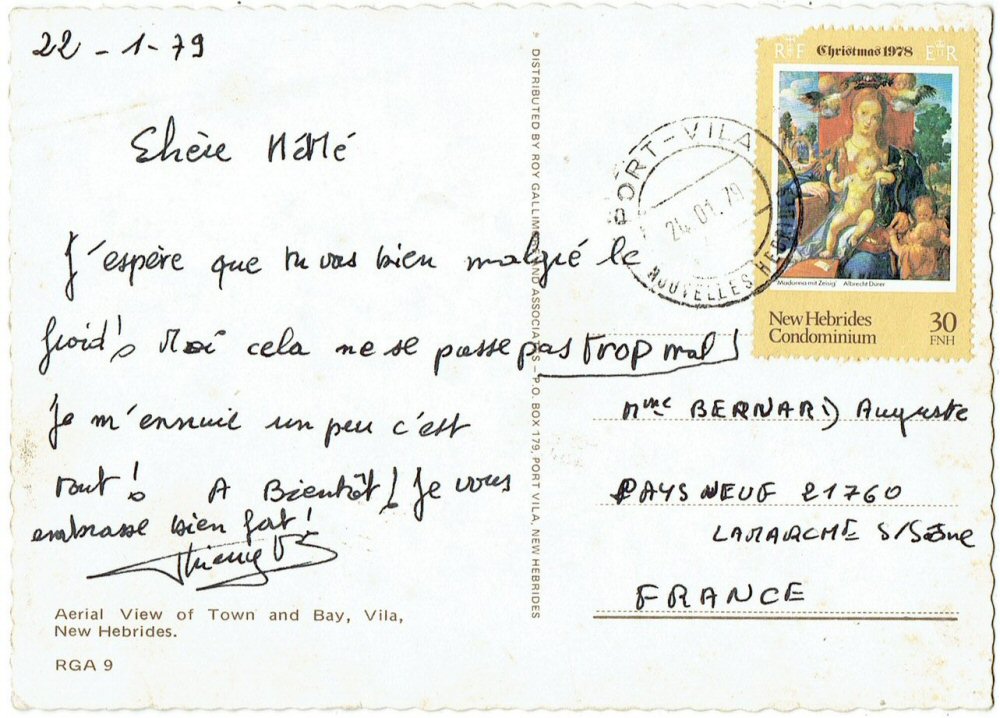 22-1-79
Chère Mémé
J'espère que tu vas bien malgré le
froid! Moi cela ne se passe pas trop mal!
Je m'ennuie un peu c'est
tout! A Bientôt! Je vous
embrasse bien fort!
Thierry
Aerial View of Town and Bay, Vila,
New Hebrides.
RGA 9
DISTRIBUTED BY ROY GALLIMORE AND ASSOCIATES - P.O. BOX 179, PORT VILA, NEW HEBRIDES
PORT-VILA
24.01.79
NOUVELLES HEBRIDES
RF Christmas 1978 ER
Madonna mit Zeisig Albrecht Dürer
New Hebrides 30
Condominium FNH
Mme BERNARD Auguste
PAYS NEUF 21760
LAMARCHE S/Saône
FRANCE